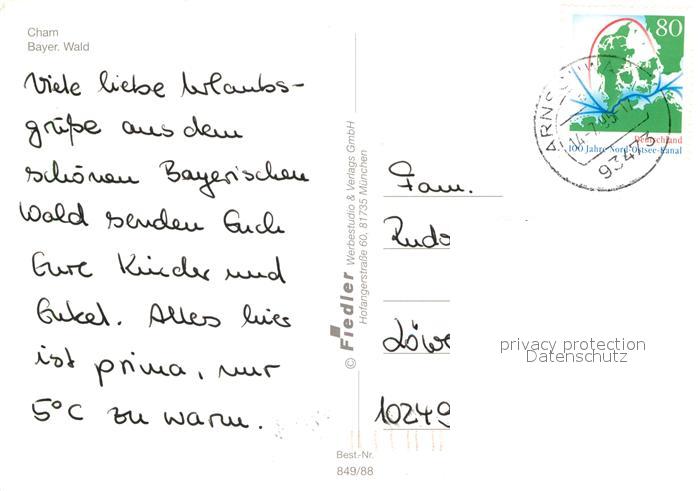 Cham
Bayer. Wald
Viele liebe Urlaubs-
grüße aus dem
schönen Bayerischen
Wald senden Euch
Eure Kinder und
Enkel. Alles hier
ist prima, nur
5°C zu warm.
© Fiedler Werbestudio & Verlags GmbH
Hofangerstraße 60, 81735 München
Best.-Nr.
849/88
80
Deutschland
100 Jahre Nord-Ostsee-Kanal
93473
Fam.
Rudo
Löwe
10249
privacy protection
Datenschutz